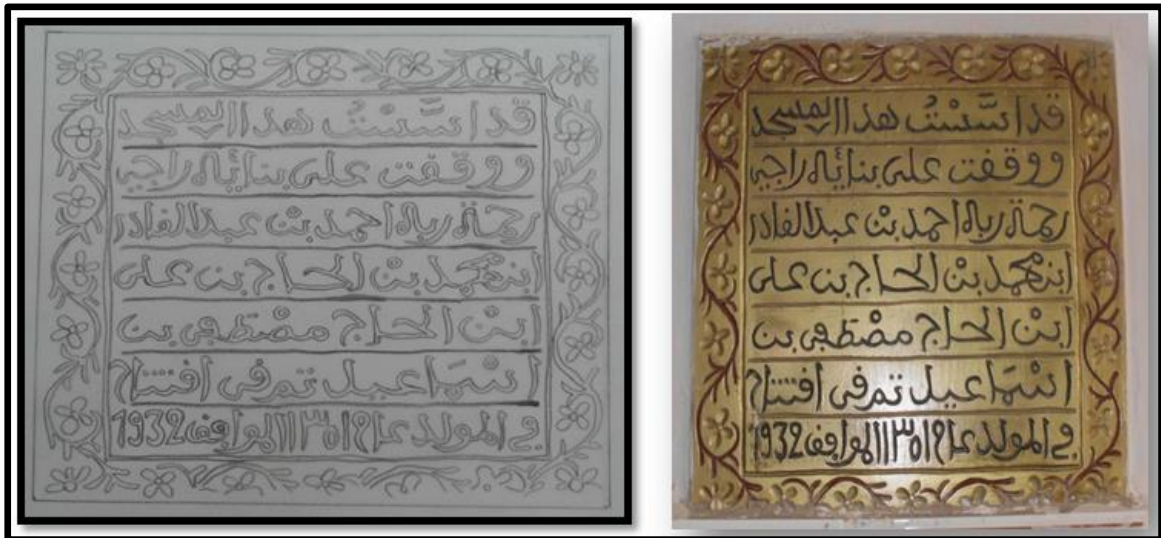 قد اسَّسْتُ هذا المسجد
ووقفت على بنائه راجي
رحمة ربه احمد بْن عبد القادر
ابن محمد بْن الحاج بن على
ابْن الحاج مصْطَفى بن
اسْمَاعيل تم فى افتتاح
في المولد عام ١٣٥١ الموافق 1932
قد اسَّسْتُ هذا المسجد
ووقفت على بنائه راجي
رحمة ربه احمد بْن عبد القادر
ابن محمد بْن الحاج بن على
ابْن الحاج مصْطَفى بن
اسْمَاعيل تم فى افتتاح
في المولد عام ١٣٥١ الموافق 1932